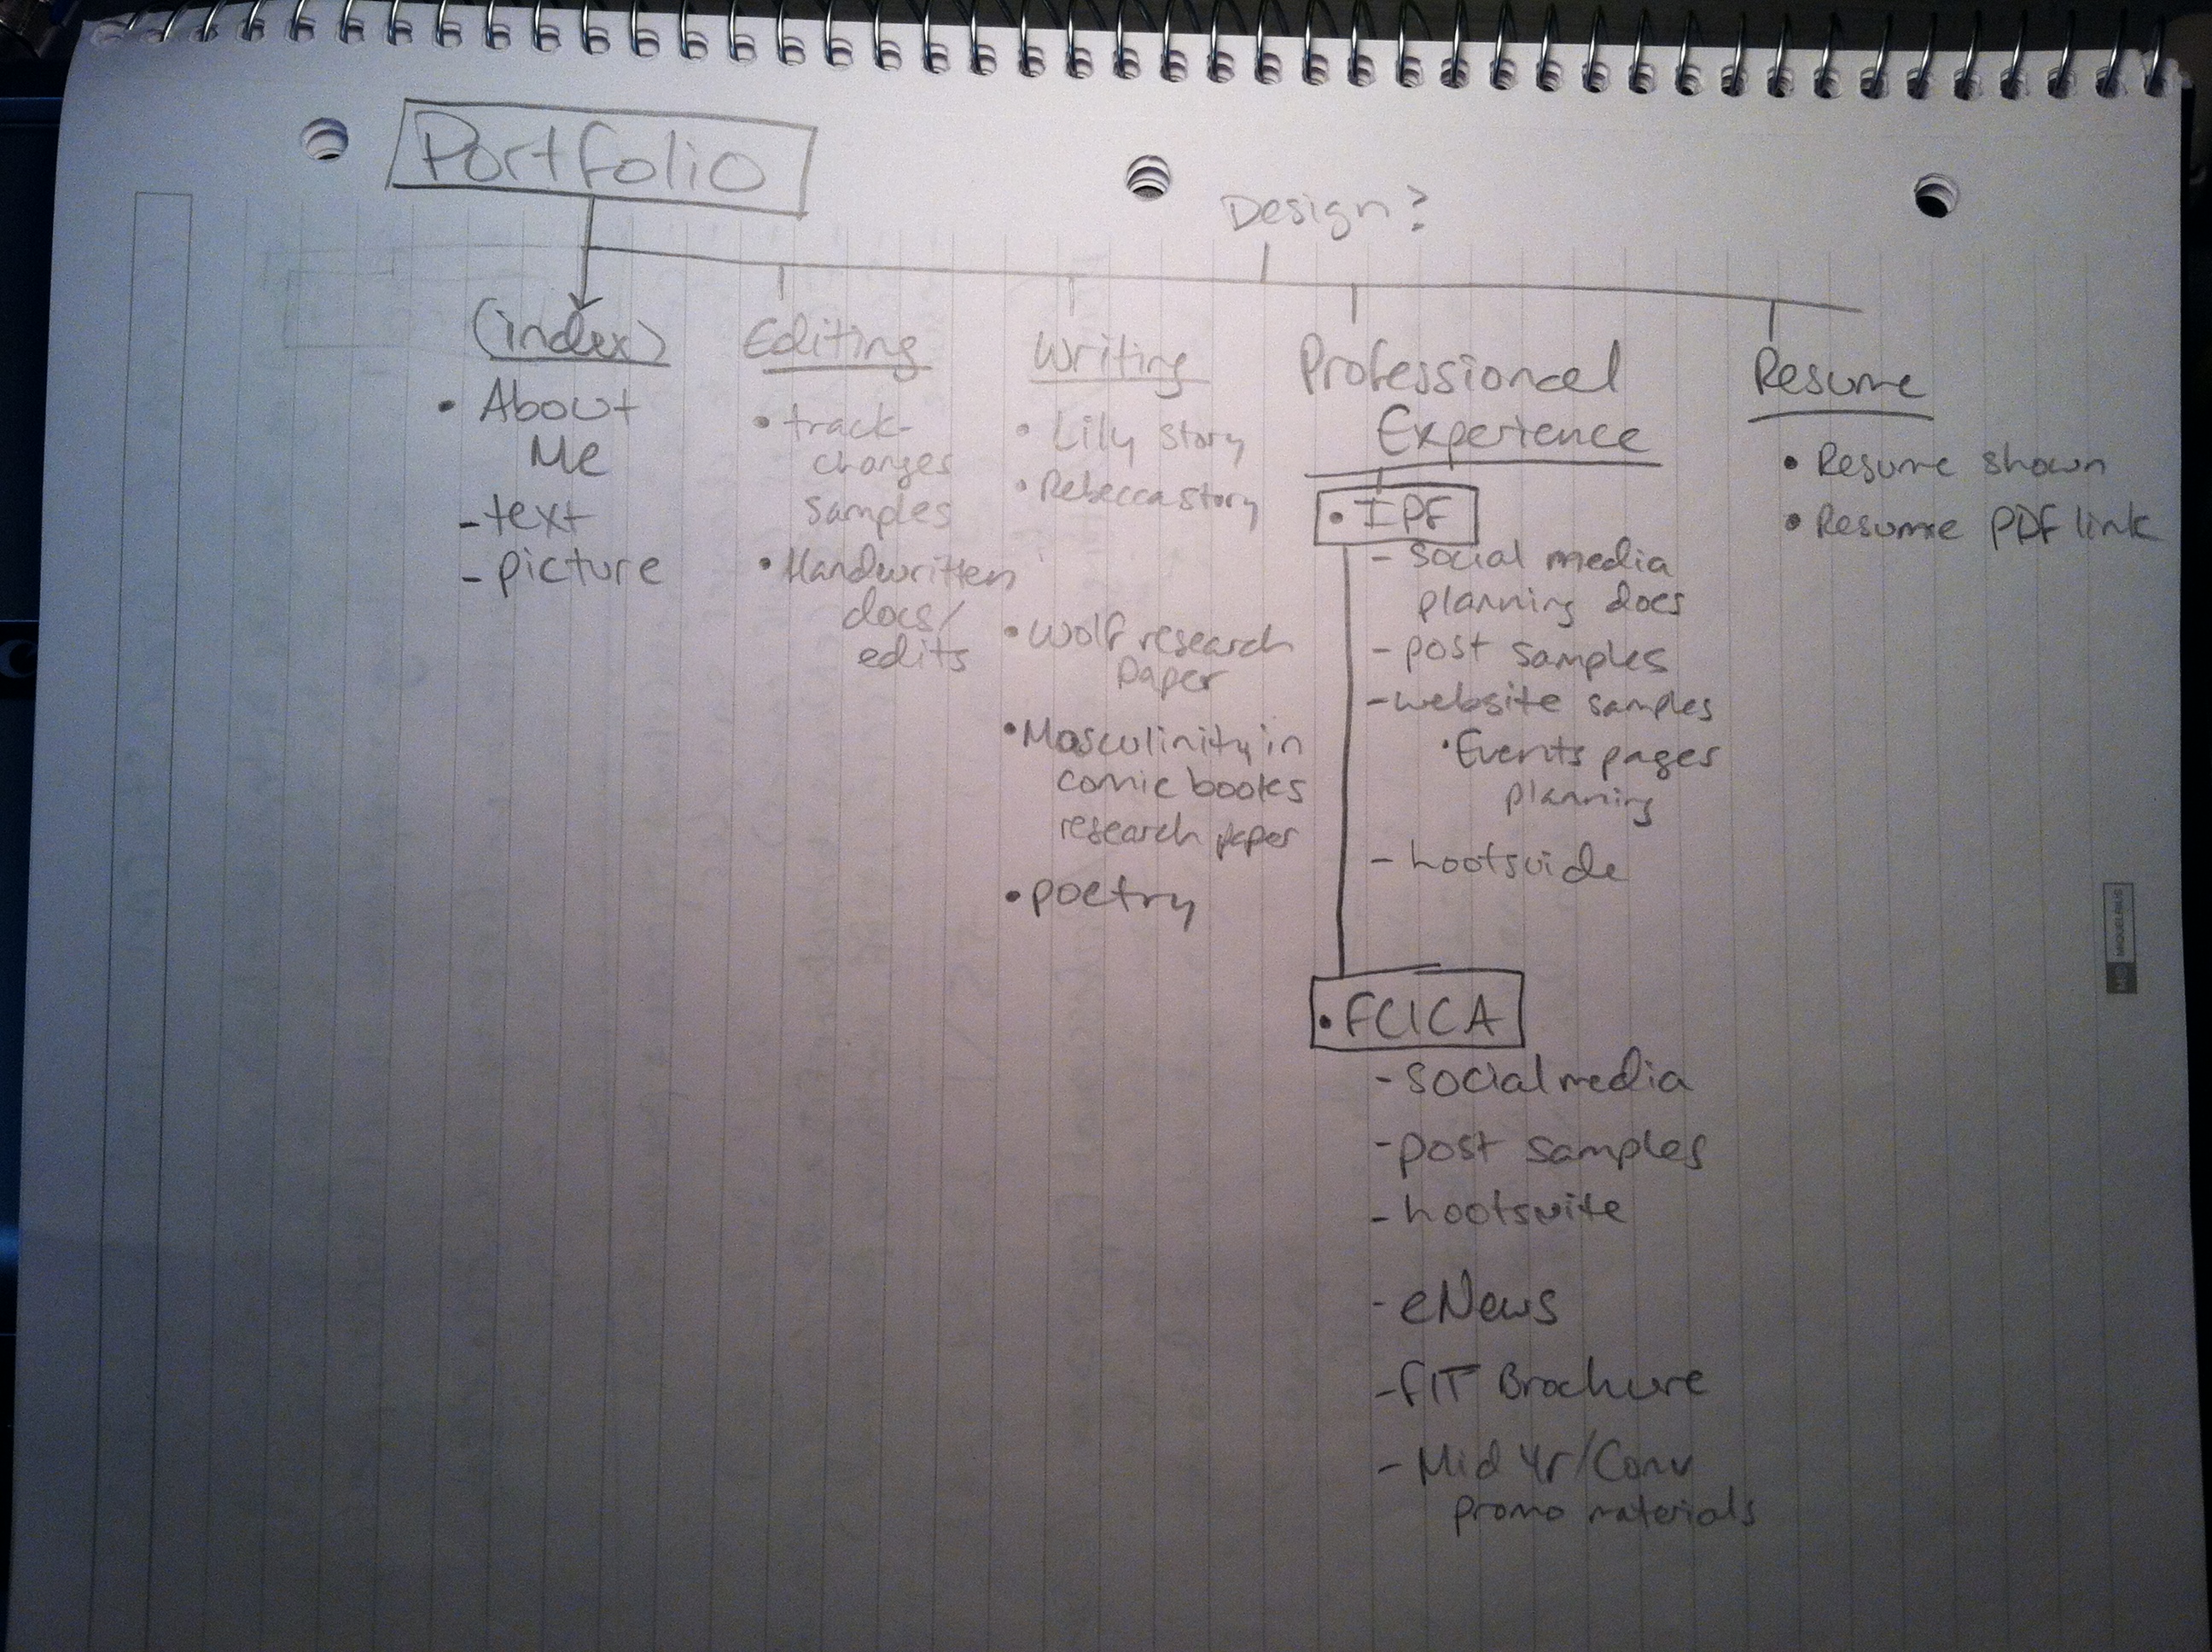 Portfolio
Design?
(index)
• About
Me
- text
- picture
Editing
• track-
changes
samples
• Handwritten
docs/
edits
Writing
• Lily story
• Rebecca story
• Wolf research
paper
• Masculinity in
comic books
research paper
• poetry
Professional
Experience
• IPF
- social media
planning docs
- post samples
- website samples
• Events pages
planning
- hootsuide
• FCICA
- social media
- post samples
- hootsuite
- eNews
- FIT Brochure
- Mid Yr/Conv
promo materials
Resume
• Resume shown
• Resume PDF link
MIQUELRIUS